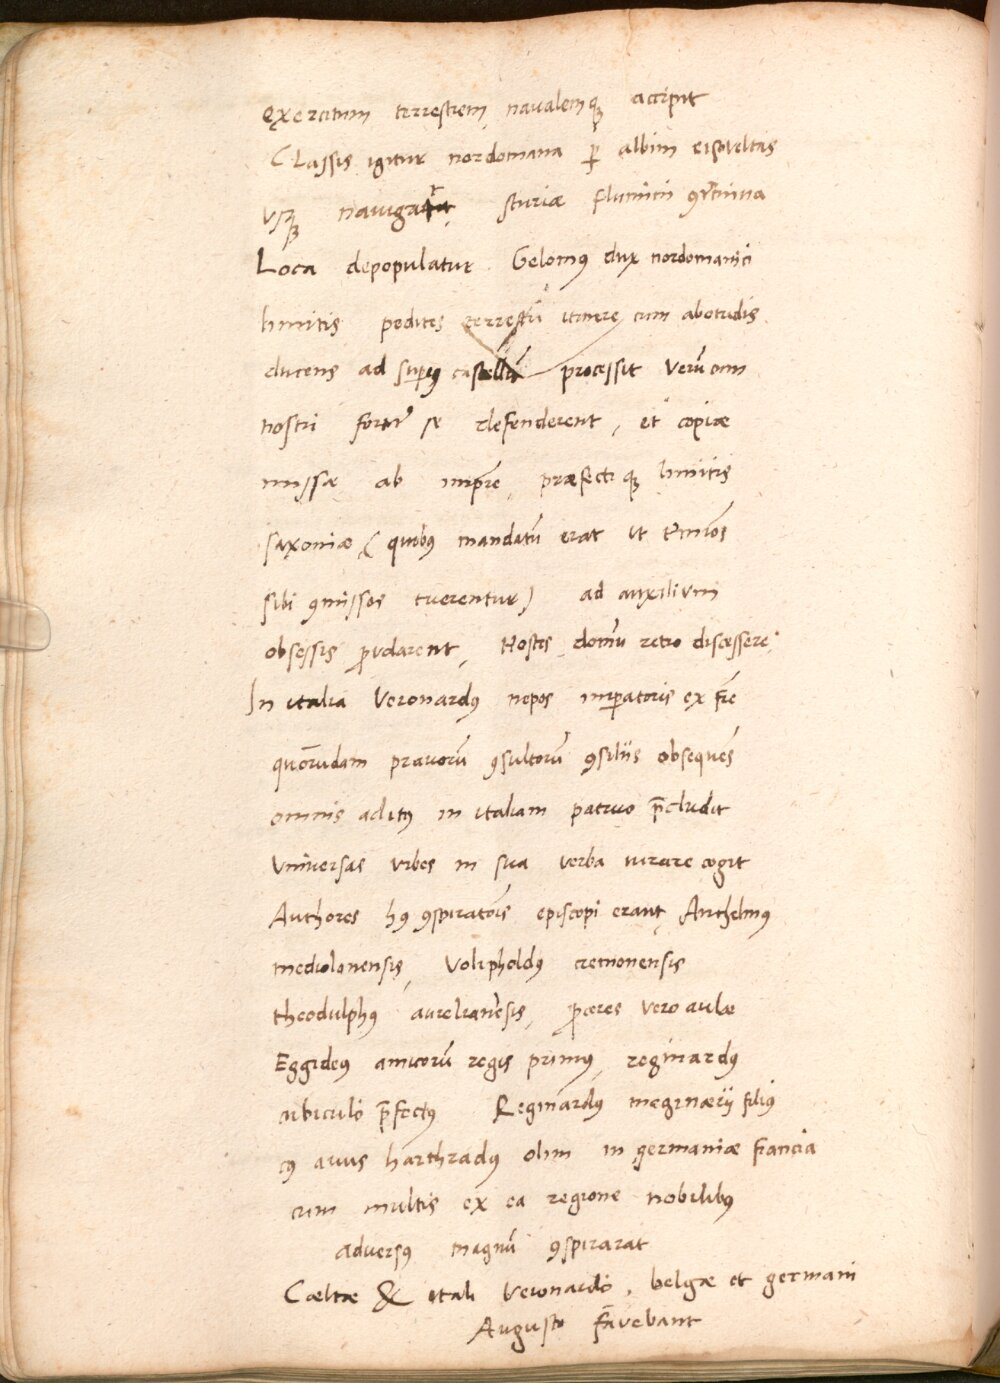 exercitum terrestrem navalemq₃ accipit
Classis igitur nordomana p̱ albim eisoveltas
vsq₃ navigat sturiæ fluminī ꝯtinua
Loca depopulatur. Gelomꝰ dux nordomanici
limitis pedites terrestri itinere cum abotridis
ducens ad supiꝰ castellū processit Verū cum
nostri fortit̃ se defenderent, et copiæ
missæ ab imp̄re, præfectiq₃ limitis
saxoniæ (quibus mandatū erat ut termīos
sibi ꝯmissos tuerentur) ad auxilium
obsessis ꝓvolarent, Hostes domū retro discessere.
In italia Veronardꝰ nepos imperatoris ex fr̄e
quōrudam pravorū ꝯsultorū ꝯsiliis obsequēs
omnis aditꝰ in italiam patruo p̄cludit
Vniversas vrbes in sua verba iurare cogit
Authores hꝰ ꝯspiratōis episcopi erant, Anthelmꝰ
mediolanensis, Volipholdꝰ cremonensis
theodulphꝰ aurelianēsis, ꝓceres vero aulæ
Eggideus amicorū regis primꝰ, reginardꝰ
cubiculo p̄fectꝰ Reginardꝰ meginærij filiꝰ
cꝰ avus harthradꝰ olim in germaniæ francia
cum multis ex ea regione nobilibꝰ
adversꝰ magnū ꝯspirarat
Cæltæ & itali Veronardo, belgæ et germani
Augusto favebant